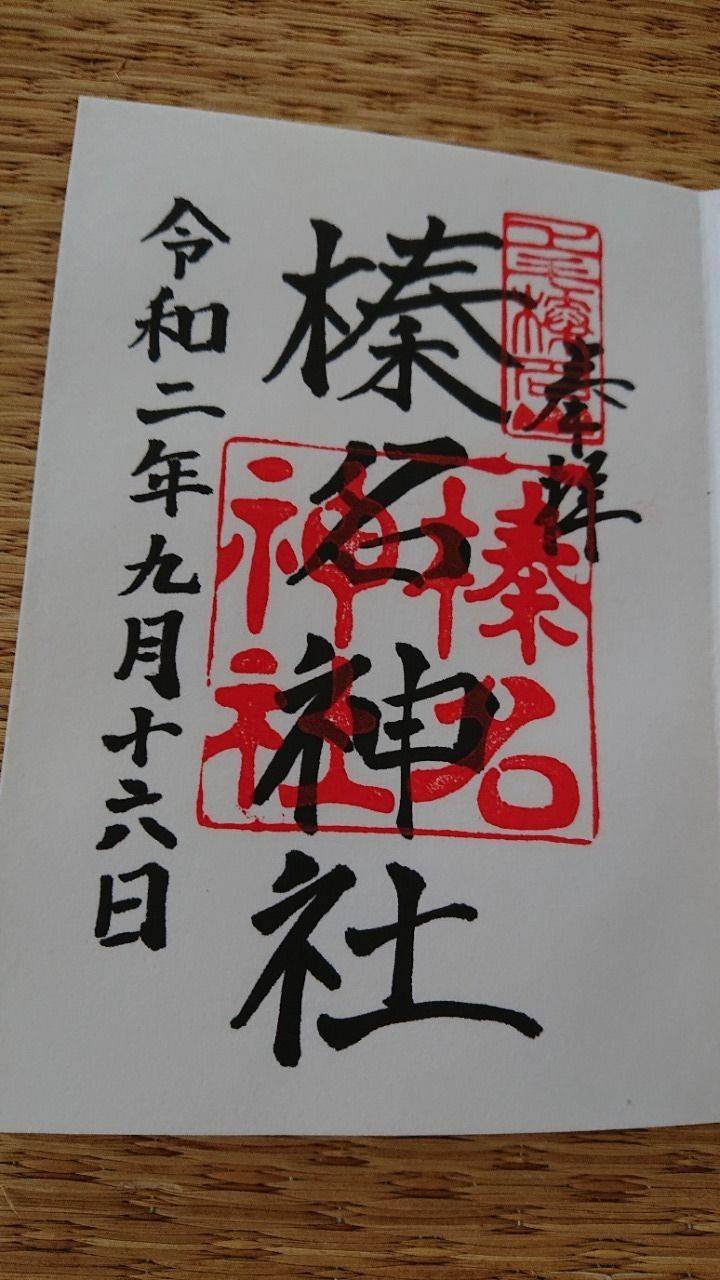 奉拝
榛名神社
令和二年九月十六日
榛名
神社